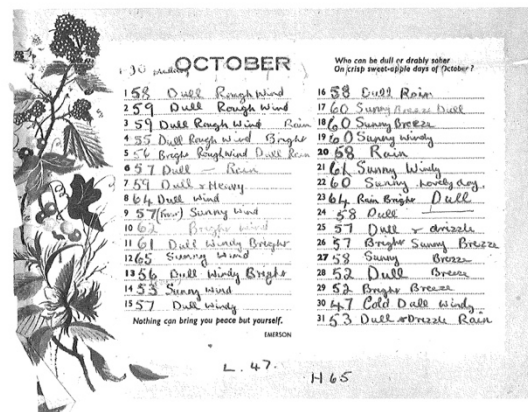 OCTOBER
1 58 Dull Rough Wind
2 59 Dull Rough Wind
3 59 Dull Rough Wind Rain
4 55 Dull Rough Wind Bright
5 56 Bright Rough Wind Dull Rain
6 57 Dull – Rain
7 59 Dull & Heavy
8 64 Dull Wind
9 57 Sunny Wind
10 62 Bright Wind
11 61 Dull Windy Bright
12 65 Sunny Wind
13 56 Dull Windy Bright
14 53 Sunny Wind
15 57 Dull Windy
Nothing can bring you peace but yourself.
EMERSON
Who can be dull or drably sober
On crisp sweet-apple days of October?
16 58 Dull Rain
17 60 Sunny Breeze Dull
18 60 Sunny Breeze
19 60 Sunny Windy
20 58 Rain
21 61 Sunny Windy
22 60 Sunny Lovely day.
23 64 Rain Bright Dull
24 58 Dull
25 57 Dull & drizzle
26 57 Bright Sunny Breeze
27 58 Sunny Breeze
28 52 Dull Breeze
29 52 Bright Breeze
30 47 Cold Dull Windy
31 53 Dull & Drizzle Rain
L. 47.
H 65